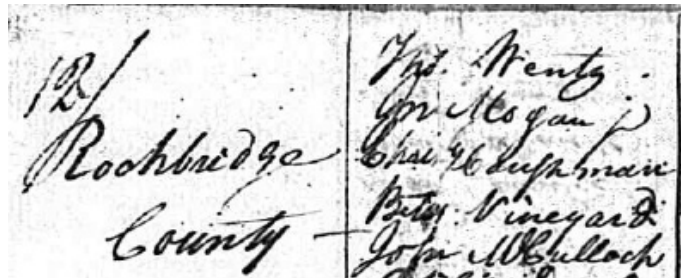 12/
Rockbridge
County —
Thos. Wentz.
Jn Mogan jr
Chas. Haughman
Betsy Vineyard
John McCulloch